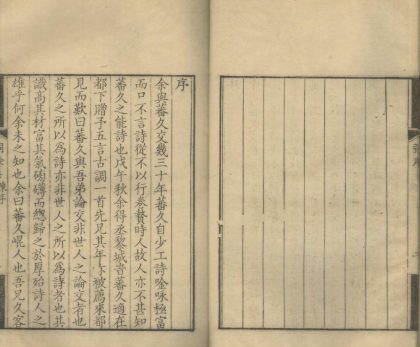 序
余與蕃久交幾三十年蕃久自少工詩唫咏極富
而口不言詩從不以行卷贄時人故人亦不甚知
蕃久之能詩也戊午秋余得丞黎城皆蕃久適在
都下贈予五言古調一首先兄其年亦被薦來都
見而歎曰蕃久與吾弟論交非世人之論交者也
蕃久之所以為詩亦非世人之所以為詩者也其
識高其材富其氣磅礴而總歸之於厚殆詩人之
雄乎何余未之知也余曰蕃久崐人也吾兄久客
序